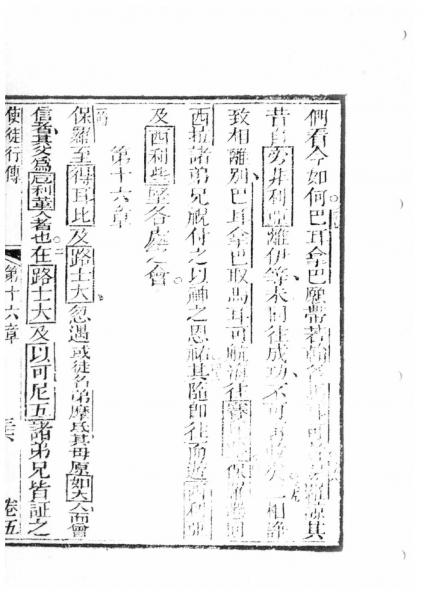 們看今如何巴耳拿巴願帶若翰其
昔自旁非利亞離伊等未同往成功不可相諍
致相離別巴耳拿巴取馬耳可航海往保羅
西拉諸弟兄祝付之以神之恩祐其隨即往遊西利亞
及西利些堅各處之會
第十六章
保羅至得耳比及路士大忽遇或徒名弟摩氐其母原如大人而會
信者其父爲厄利革人者也在路士大及以可尼五諸弟兄皆証之
使徒行傳 第十六章 卷五